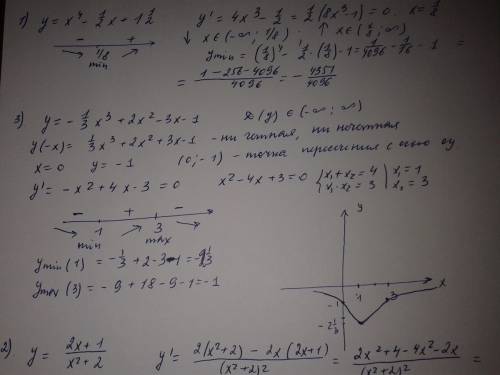 1) y = x⁴ - ½x + 1½   y' = 4x³ - ½ = ½(8x³-1) = 0.   x = ⅛
↓ x ∈ (-∞; 1/8)   · ↑ x ∈ (⅛; ∞)
- +
1/8
min
y min = (⅛)⁴ - ½·(⅛) - 1 = 1/4096 - 1/16 - 1 =
= (1 - 256 - 4096)/4096 = - 4351/4096
3) y = - ⅓x³ + 2x² - 3x - 1   D(y) ∈ (-∞; ∞)
y(-x) = ⅓x³ + 2x² + 3x - 1 - ни чотная, ни нечотная
x = 0   y = -1   (0; -1) - точка пересечения с осью оу
y' = - x² + 4x - 3 = 0   x² - 4x + 3 = 0   { x₁ + x₂ = 4 | x₁ = 1
x₁ · x₂ = 3 | x₂ = 3
- + -
1 3
min max
y min (1) = - ⅓ + 2 - 3 - 1 =
y max (3) = - 9 + 18 - 9 - 1 = -1
y
x
1 3
-1
-2⅓
2) y = (2x + 1)/(x² + 2)   y' = (2(x²+2) - 2x(2x+1))/(x²+2)² = (2x² + 4 - 4x² - 2x)/(x²+2)² =